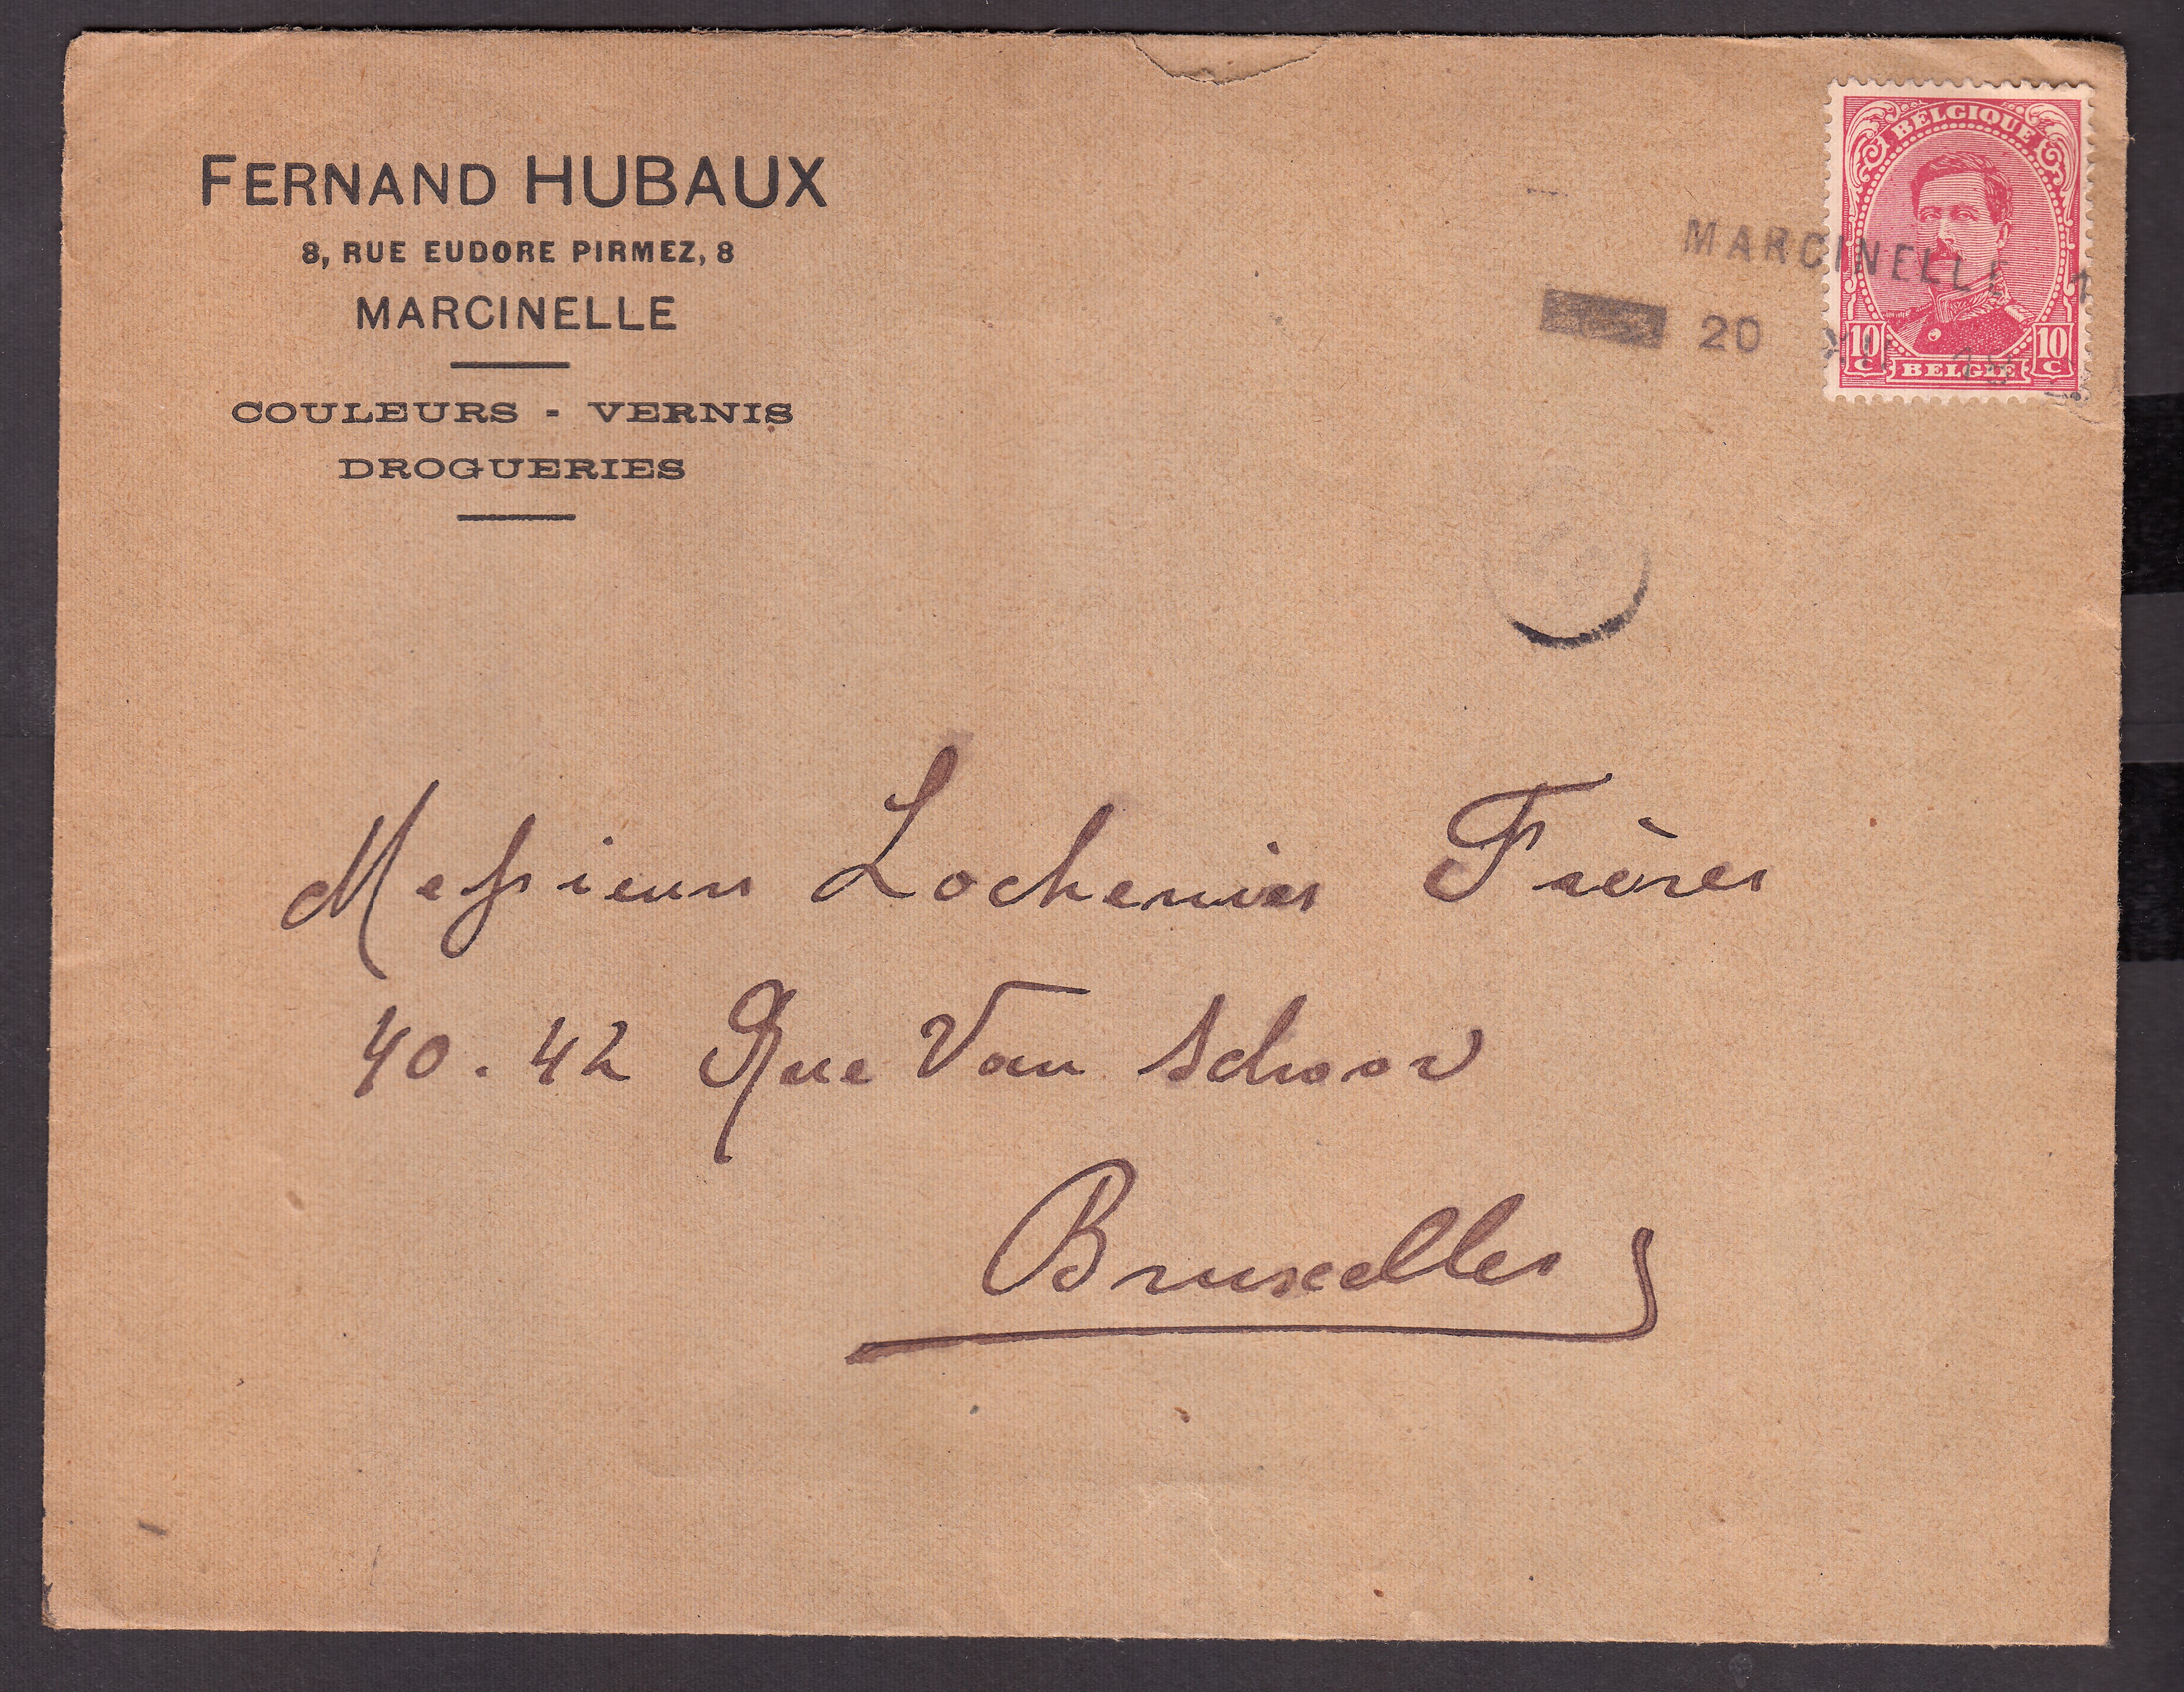 FERNAND HUBAUX
8, RUE EUDORE PIRMEZ, 8
MARCINELLE
COULEURS - VERNIS
DROGUERIES
BELGIQUE
MARCINELLE 1
20
10 c BELGIË 10 c
Messieurs Lochenies Frères
40. 42 Rue Van Schoor
Bruxelles